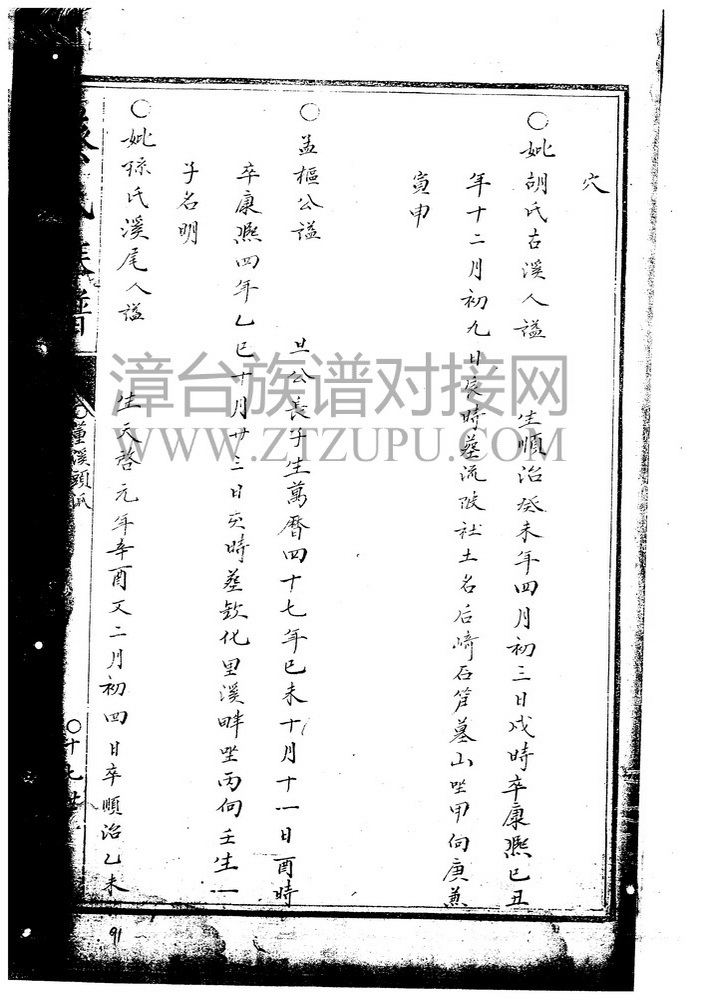 穴
○妣胡氏古溪人謚 生順治癸未年四月初三日戌時卒康熙己丑
年十二月初九日辰時葬流陂社土名后崎石笋墓山坐甲向庚兼
寅申
○孟樞公謚 旦公長子生萬曆四十七年己未十月十一日酉時
卒康熙四年乙巳十月廿三日亥時葬欽化里溪畔坐丙向壬生一
子名明
○妣孫氏溪尾人謚 生天啓元年辛酉又二月初四日卒順治乙未
氏族譜
○董溪頭派
○十七世
91
漳台族谱对接网
WWW.ZTZUPU.COM